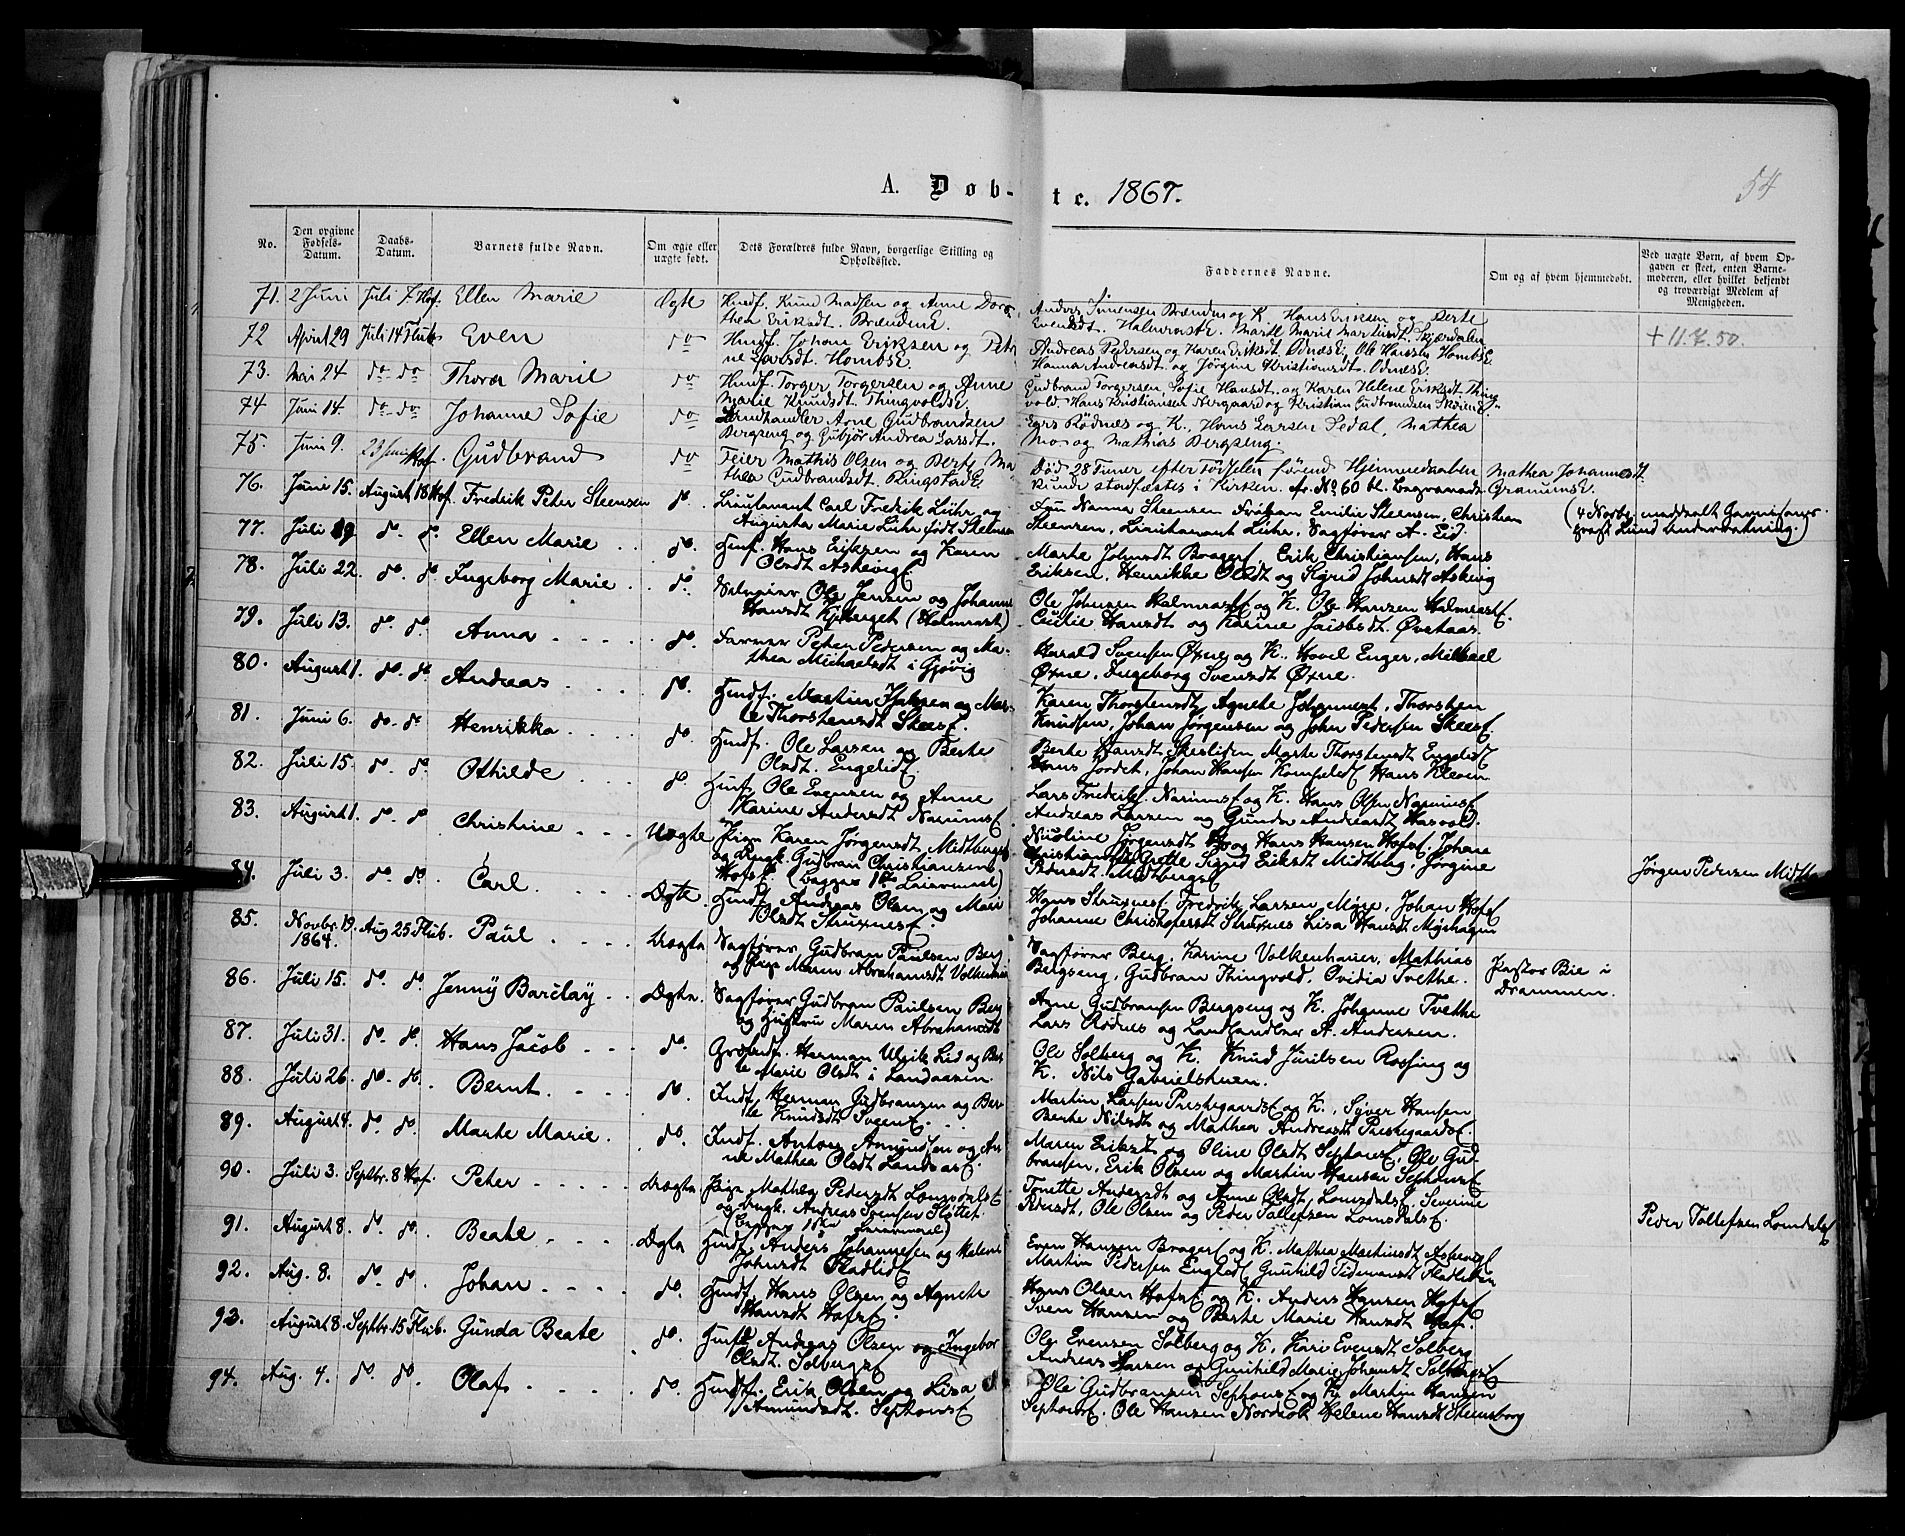 A. Døb-
te. 1867.
54
No.
Den opgivne Fødsels-Datum.
Daabs-Datum.
Barnets fulde Navn.
Om ægte eller uægte født.
Dets Forældres fulde Navn, borgerlige Stilling og Opholdssted.
Faddernes Navne.
Om og af hvem hjemmedøbt.
Ved uægte Børn, af hvem Opgaven er skeet, enten Barnemoderen, eller hvilket bekjendt og troværdigt Medlem af Menigheden.
71. 2 Juni Juli 7 Hof. Ellen Marie Ægte Huusf. Knud Madsen og Anne Doro-
thea Eriksdt. BrændenE.
Anders Simensen Brænden og K. Hans Eriksen og Berte
Evensdt.
72 April 29 Juli 14 Flub. Even do Huusf. Johan Eriksen og
Larsdt. HombsE.
Andreas Pedersen og Karen Eriksdt. ØdnesE. Ole Hansen HombsE.
Hanna Andreasdt. og Jørgine Kristiansdt. ØdnesE.
+ 11.7.50.
73. Mai 24 do do Thora Marie do Huusf. Torger Torgersen og Anne
Marie Knudsdt. ThingvoldsE.
Gudbrand Torgersen Sofie Hansdt. og Karen Helene Eriksdt. Thing-
vold. Hans Kristiansen Nergaard og Kristian Gudbrandsen
74 Juni 14. do do Johanne Sofie do Landhandler Arne Gudbrandsen
Bergseng og Gubjør Andrea Larsdt.
Lars Rødnes og K., Hans Larsen Sedal, Mathea
Mo og Mathias Bergseng.
75. Juni 9. 23 Juni Hof. Gudbrand do Feier Mathis Olsen og Berte Ma-
thea Gudbrandsdt. RingstadE.
Død 28 Timer efter Fødselen førend Hjemmedaaben
kunde stadfæstes i Kirken. No 60 bl. Begravede
Mathea Johannesdt.
GranumsE.
76. Juni 15. August 18 Hof. Fredrik Peter Steensen do. Lieutenant Carl Fredrik Lühr og
Augusta Marie Lühr født Steensen
Fru Nanna Steensen Frøken Emilie Steensen, Christian
Steensen, Lieutenant Lühr, Sagfører A. Eid.
77. Juli do. do. Ellen Marie do. Huusf. Hans Eriksen og Karen
Olsdt AskevigE.
Marthe Johnsdt BragerE, Erik Christiansen, Hans
Eriksen, Henrikke Olsdt og Sigrid Johnsdt Askvig
78. Juli 22. do. do Ingeborg Marie do. Ole Jensen og Johanne
Hansdt Kjiberget (Halmrast)
Ole Johnsen HalmrastE og K. Ole Hansen HalmrastE.
Cecilie Hansdt og Karine Jacobsdt. Øvrhaar.
79. Juli 13. do. do. Anna do. Farver Peter Pedersen og Ma-
thea Michaelsdt i Gjøvig
Harald Svensen Øxne og K., Hovel Enger, Mikael
Øxne, Ingeborg Svensdt Øxne.
80. August 1. do. do. Andreas do. Huusf. Martin Isaksen og Mar-
te Thorstensdt SkeesE.
Karen Thorstensdt, Agnethe Johannesdt, Thorsten
Knudsen, Johan Jørgensen og John Pedersen SkeesE.
81. Juni 6. do. do Henrikka do. Huusf. Ole Larsen og Berte
Olsdt. EngelidE.
Berte Hansdt Skeslien Marte Thorstensdt Engelidt
Hans Jordet, Johan Hansen Hans Kleven
82. Juli 15. do. do. Othilde do. Huusf. Ole Evensen og Anne
Karine Andersdt NarumsE.
Lars Fredriks. NarumsE og K. Hans Olsen NarumsE.
Andreas Larsen og Gunda Andreasdt Hasvold.
83. August 1. do. do. Christine Uægte Pige Karen Jørgensdt MidtbergsE
og Ungk. Gudbran Christiansen
HofsE. (begges 1ste Leiermaal)
Nicoline Jørgensdt og Hans Hansen HofsE. Johan
Christiansen, Grethe Sigrid Eriksdt Midtberg, Jørgine
Pedersdt. MidtbergsE
Jørgen Pedersen Midtb
84. Juli 3. do. do. Carl. Ægte. Huusf. Andreas Olsen og Mari
Olsdt StruxnesE.
Hans StruxnesE. Fredrik Larsen Mojie, Johan HofsE
Johanne Christophersdt Struxnes Lisa Hansdt Myhagen
85. Novbr. 19.
1864. Aug 25 Flub. Paul Uægte Sagfører Gudbran Paulsen Berg
og Pige Maren Abrahamsdt Volkenhauer
Sagfører Berg, Karine Volkenhauer, Mathias
Bergseng, Gudbran Thingvold, Ovidia Tvethe.
Pastor Bie i
Drammen.
86. Juli 15. do. do. Jenny Barclay Ægte. Sagfører Gudbran Paulsen Berg
og Hustru Maren Abrahamsdt
Arne Gudbransen Bergseng og K. Johanne Tvethe
Lars Rødnes og Landhandler A. Andersen.
87. Juli 31. do. do. Hans Jacob do. Herman Ulrik Lid og Ber-
te Marie Olsdt i Landaasen.
Ole Solberg og K. Knud Juulsen Rossing og
K. Nils Gabrielshuen.
88. Juli 26. do. do. Bernt. do. Indf. Herman Gudbransen og Ber-
te Knudsdt SveenE.
Martin Larsen PrestegaardsE og K., Syver Hansen
Berte Nilsdt og Mathea Andreasdt PrestegaardsE.
89. August 4. do. do. Marte Marie. do. Indf. Anton Amundsen og An-
ne Mathea Olsdt LandsasE.
Maren Eriksdt og Oline Olsdt SephonsE, Ole Gud-
bransen, Erik Olsen og Martin Hansen SephonsE
90. Juli 3. Septbr. 8 Hof. Peter Uægte Pige Mathea Pedersdt LomsdalsE
og Ungk. Andreas Svensen Slottet.
(begges 1ste Leiermaal)
Tonette Andersdt og Anne Olsdt, LomsdalsE, Severine
Pedersdt, Ole Olsen og Peder Tollefsen LomsdalsE.
Peder Tollefsen LomdalsE
91. August 8. do. do. Beate Ægte Huusf. Anders Johannesen og Helene
Johnsdt FladlidE
Even Hansen BragerE og K. Mathea Martinsdt AskevigE
Martin Pedersen EngelidE Gunhild Tidemansdt Fladlien
92. Aug. 8. do. do. Johan do. Huusf. Hans Olsen og Agnete
Hansdt HofsE.
Hans Olsen HofsE og K. Anders Hansen HofsE
Sven Hansen og Berte Marie Hansdt Hof.
93. August 8. Septbr. 15 Flub. Gunda Beate do. Huusf. Andreas Olsen og Ingebor
Olsdt. SolbergsE
Ole Evensen Solberg og K. Kari Evensdt Solberg
Andreas Larsen og Gunhild Marie Johansdt SolbergsE
94. Aug. 4. do. do. Olaf do. Huusf. Erik Olsen og Lisa
Amundsdt. SephonsE
Ole Gudbransen SephonsE og K. Martin Hansen
SephonsE. Ole Hansen Nordsok Helene Hansdt Steensborg